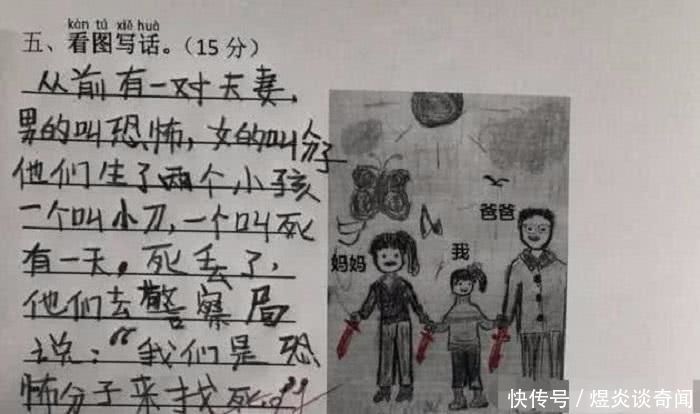 kàn tú xiě huà
五、看图写话。（15分）
从前有一对夫妻，
男的叫恐怖，女的叫分子
他们生了两个小孩
一个叫小刀，一个叫死
有一天，死丢了，
他们去警察局
说：“我们是恐
怖分子来找死。”
妈妈
我
爸爸
快传号／煜炎谈奇闻